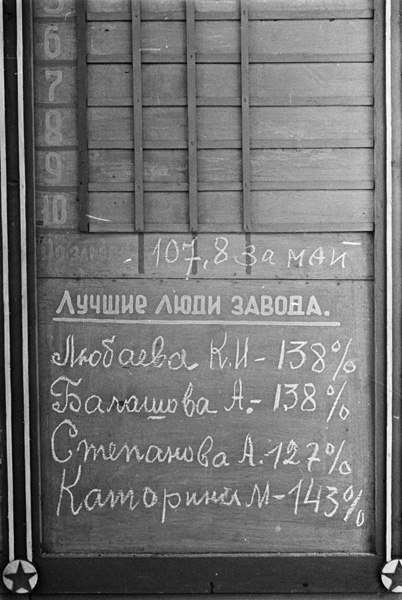 5
6
7
8
9
10
107,8 за май
Лучшие люди завода.
Любаева К.И - 138%
Балашова А. - 138%
Степанова А. 127%
Каторина М - 143%